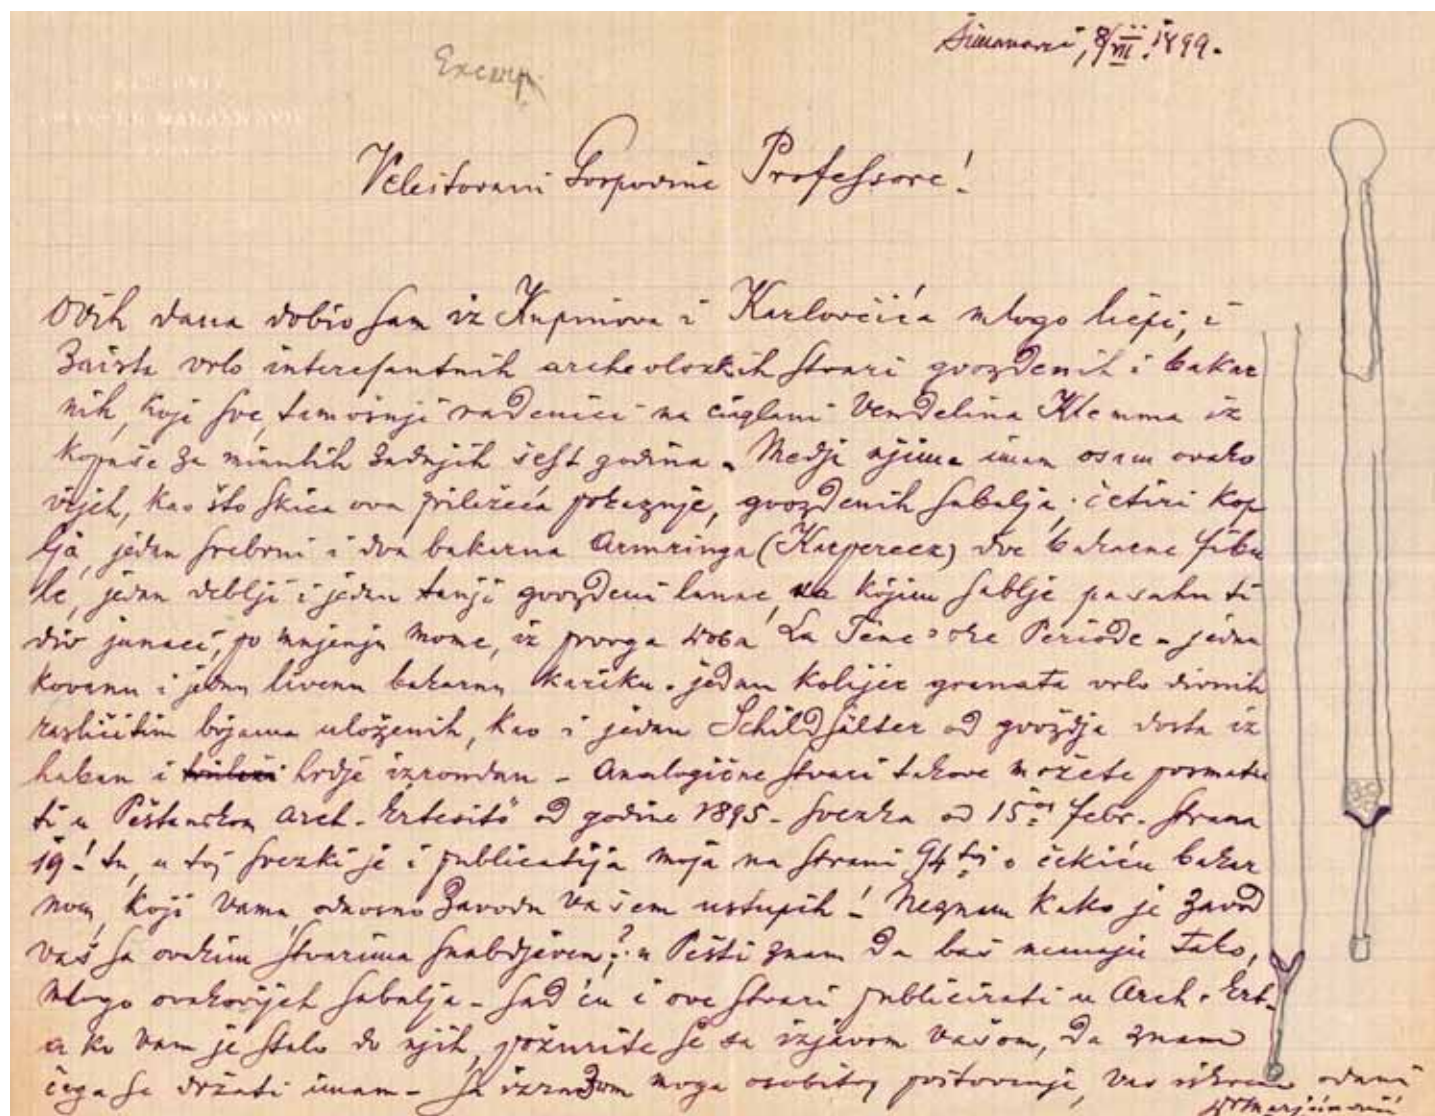 Excerpt
Šimanovci, 8/III. 1899.
Veleštovani Gospodine Professore!
Ovih dana dobio sam iz Kupinova i Karlovčića mlogo liepi, i
zaista vrlo interesantnih archeolozkih stvari gvozdenih i bakar
nih, koji sve tamošnji radenici na ciglani Vendelina Klemma iz
kopaše za minulih zadnjih šest godina. Medju njima imam osam ovako
vijeh, kao što skica ova priležeća pokazuje, gvozdenih sabalja, četiri kop
lja, jedan srebrni i dva bakarna Armringa (Karperecz) dve bakarne fibu
le, jedan deblji i jedan tanji gvozdeni lanac, na kojim sablje pasahu ti
div junaci, po mnjenju mome, iz prvoga doba La Tène-ske Periode - jednu
kovanu i jednu livenu bakarnu kariku - jedan kolijer granata vrlo divnih
različitim bojama uloženih, kao i jedan Schildhälter od gvoždja dosta iz
haban i hrdje izromdan - Analogične stvari takove možete posmatra
ti u Peštanskom Arch. Ertesitö od godine 1895 - svezka od 15. febr. strana
19! tu, u toj svezki je i publicatija moja na strani 94 toj o čekiću bakar
nom, koji vama, odnosno Zavodu vašem ustupih! Neznam kako je zavod
vaš sa ovakim stvarima snabdjeven?; u Pešti znam da baš nemaju tako,
mlogo ovakovijeh sabalja - sad ću i ove stvari publicirati u Arch. Ert.
ako vam je stalo do njih, požurite se sa izjavom vašom, da znam
čega se držati imam - Sa izrazom moga osobitog poštovanja, vas iskreno odani